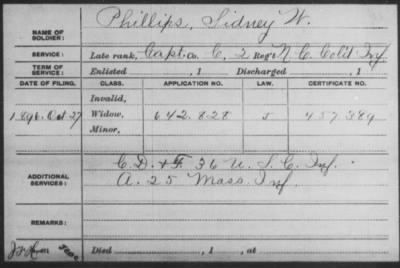 Phillips, Sidney W.
NAME OF SOLDIER:
SERVICE: Late rank, Capt. Co. C, 2 Reg't N. C. Col'd Inf.
TERM OF SERVICE: Enlisted , 1 Discharged , 1
DATE OF FILING. CLASS. APPLICATION NO. LAW. CERTIFICATE NO.
Invalid,
1896. Oct. 27 Widow, 642.828 5 457389
Minor,
ADDITIONAL SERVICES: C. D. & F. 36 U. S. C. Inf.
A. 25 Mass. Inf.
REMARKS:
Died , 1 , at